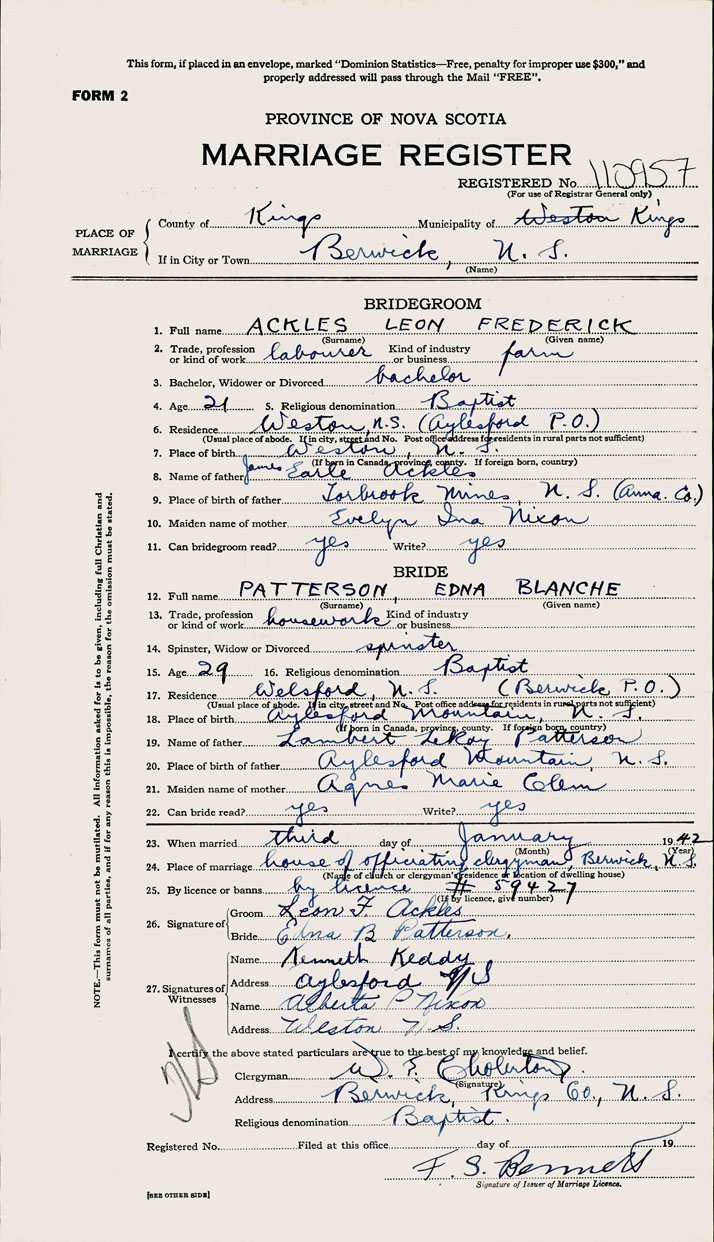 This form, if placed in an envelope, marked "Dominion Statistics—Free, penalty for improper use $300," and
properly addressed will pass through the Mail "FREE".
FORM 2
PROVINCE OF NOVA SCOTIA
MARRIAGE REGISTER
REGISTERED No. 110957
(For use of Registrar General only)
PLACE OF MARRIAGE
County of Kings Municipality of Weston Kings
If in City or Town Berwick, N. S.
(Name)
BRIDEGROOM
1. Full name ACKLES LEON FREDERICK
(Surname) (Given name)
2. Trade, profession or kind of work labourer Kind of industry or business farm
3. Bachelor, Widower or Divorced bachelor
4. Age 21 5. Religious denomination Baptist
6. Residence Weston, N.S. (Aylesford P.O.)
(Usual place of abode. If in city, street and No. Post office address for residents in rural parts not sufficient)
7. Place of birth Weston, N. S.
(If born in Canada, province, county. If foreign born, country)
8. Name of father James Earle Ackles
9. Place of birth of father Torbrook Mines, N. S. (Anna. Co.)
10. Maiden name of mother Evelyn Ina Nixon
11. Can bridegroom read? yes Write? yes
BRIDE
12. Full name PATTERSON, EDNA BLANCHE
(Surname) (Given name)
13. Trade, profession or kind of work housework Kind of industry or business
14. Spinster, Widow or Divorced spinster
15. Age 29 16. Religious denomination Baptist
17. Residence Welsford, N. S. (Berwick P.O.)
(Usual place of abode. If in city, street and No. Post office address for residents in rural parts not sufficient)
18. Place of birth Aylesford Mountain, N. S.
(If born in Canada, province, county. If foreign born, country)
19. Name of father Lambert LeRoy Patterson
20. Place of birth of father Aylesford Mountain, N. S.
21. Maiden name of mother Agnes Marie Clem
22. Can bride read? yes Write? yes
23. When married third day of January 1942
(Month) (Year)
24. Place of marriage house of officiating clergyman, Berwick, N.S.
(Name of church or clergyman's residence or location of dwelling house)
25. By licence or banns by licence # 59427
(If by licence, give number)
26. Signature of
Groom Leon F. Ackles
Bride Edna B Patterson.
27. Signatures of Witnesses
Name Kenneth Keddy
Address Aylesford N S
Name Alberta P Nixon
Address Weston N.S.
I certify the above stated particulars are true to the best of my knowledge and belief.
Clergyman W. F. Cholerton
(Signature)
Address Berwick, Kings Co., N. S.
Religious denomination Baptist.
Registered No. Filed at this office day of 19
F. S. Bennett
Signature of Issuer of Marriage Licence.
[SEE OTHER SIDE]
NOTE.—This form must not be mutilated. All information asked for is to be given, including full Christian and
surnames of all parties, and if for any reason this is impossible, the reason for the omission must be stated.